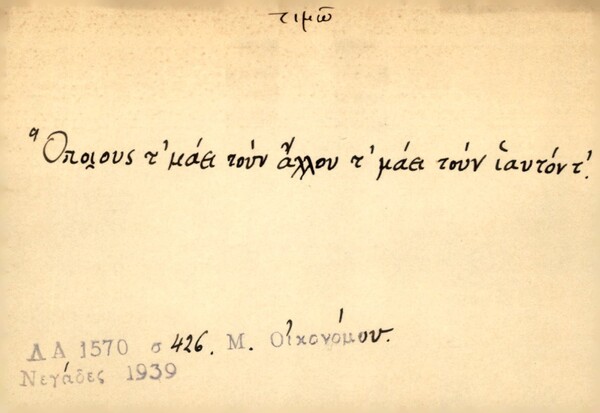 τιμῶ
Ὅποιους τ' μάει τοὺν ἄλλου τ' μάει τοὺν ἱαυτόν τ'.
ΛΑ 1570 σ 426. Μ. Οἰκονόμου.
Νεγάδες 1939